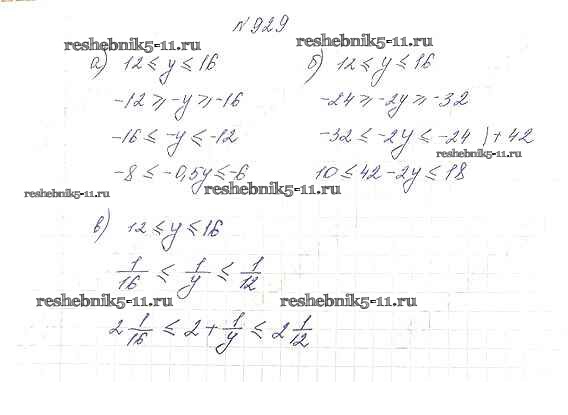 №929
reshebnik5-11.ru reshebnik5-11.ru
а) 12 ≤ y ≤ 16 б) 12 ≤ y ≤ 16
-12 ≥ -y ≥ -16 -24 ≥ -2y ≥ -32
-16 ≤ -y ≤ -12 -32 ≤ -2y ≤ -24 | + 42
reshebnik5-11.ru
-8 ≤ -0,5y ≤ -6 10 ≤ 42 - 2y ≤ 18
reshebnik5-11.ru reshebnik5-11.ru
в) 12 ≤ y ≤ 16
1/16 ≤ 1/y ≤ 1/12
reshebnik5-11.ru reshebnik5-11.ru
2 1/16 ≤ 2 + 1/y ≤ 2 1/12